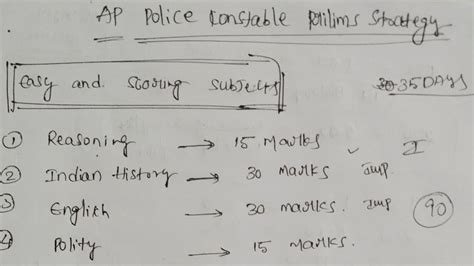 AP Police Constable Prilims Strategy
easy and scoring subjects
35 DAYS
① Reasoning → 15 Marks ✓ I
② Indian History → 30 marks Imp
③ English → 30 marks. Imp 90
4 Polity → 15 marks.